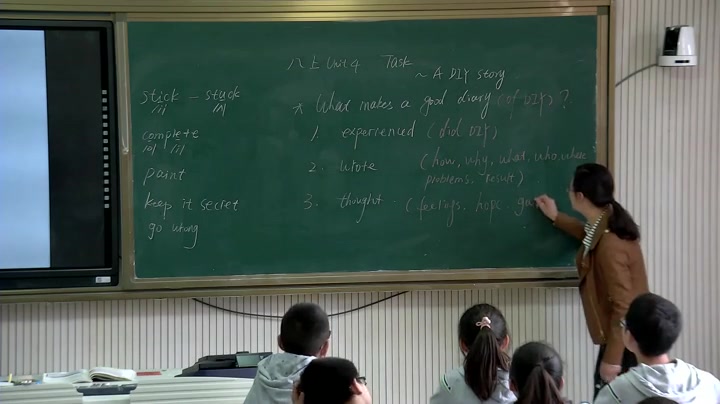 八上 Unit 4 Task
~ A DIY story
stick - stuck
/ɪ/ /ʌ/
complete
/ə/ /iː/
paint
keep it secret
go wrong
* What makes a good diary (of DIY) ?
1. experienced (did DIY)
2. wrote (how, why, what, who, where
problems. result)
3. thought. (feelings. hope.